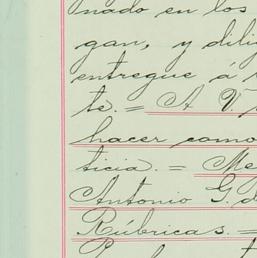 nado en los
gan, y dili
entregue á
te. = A V.
hacer como
ticia. = Me
Antonio G. d
Rúbricas. =